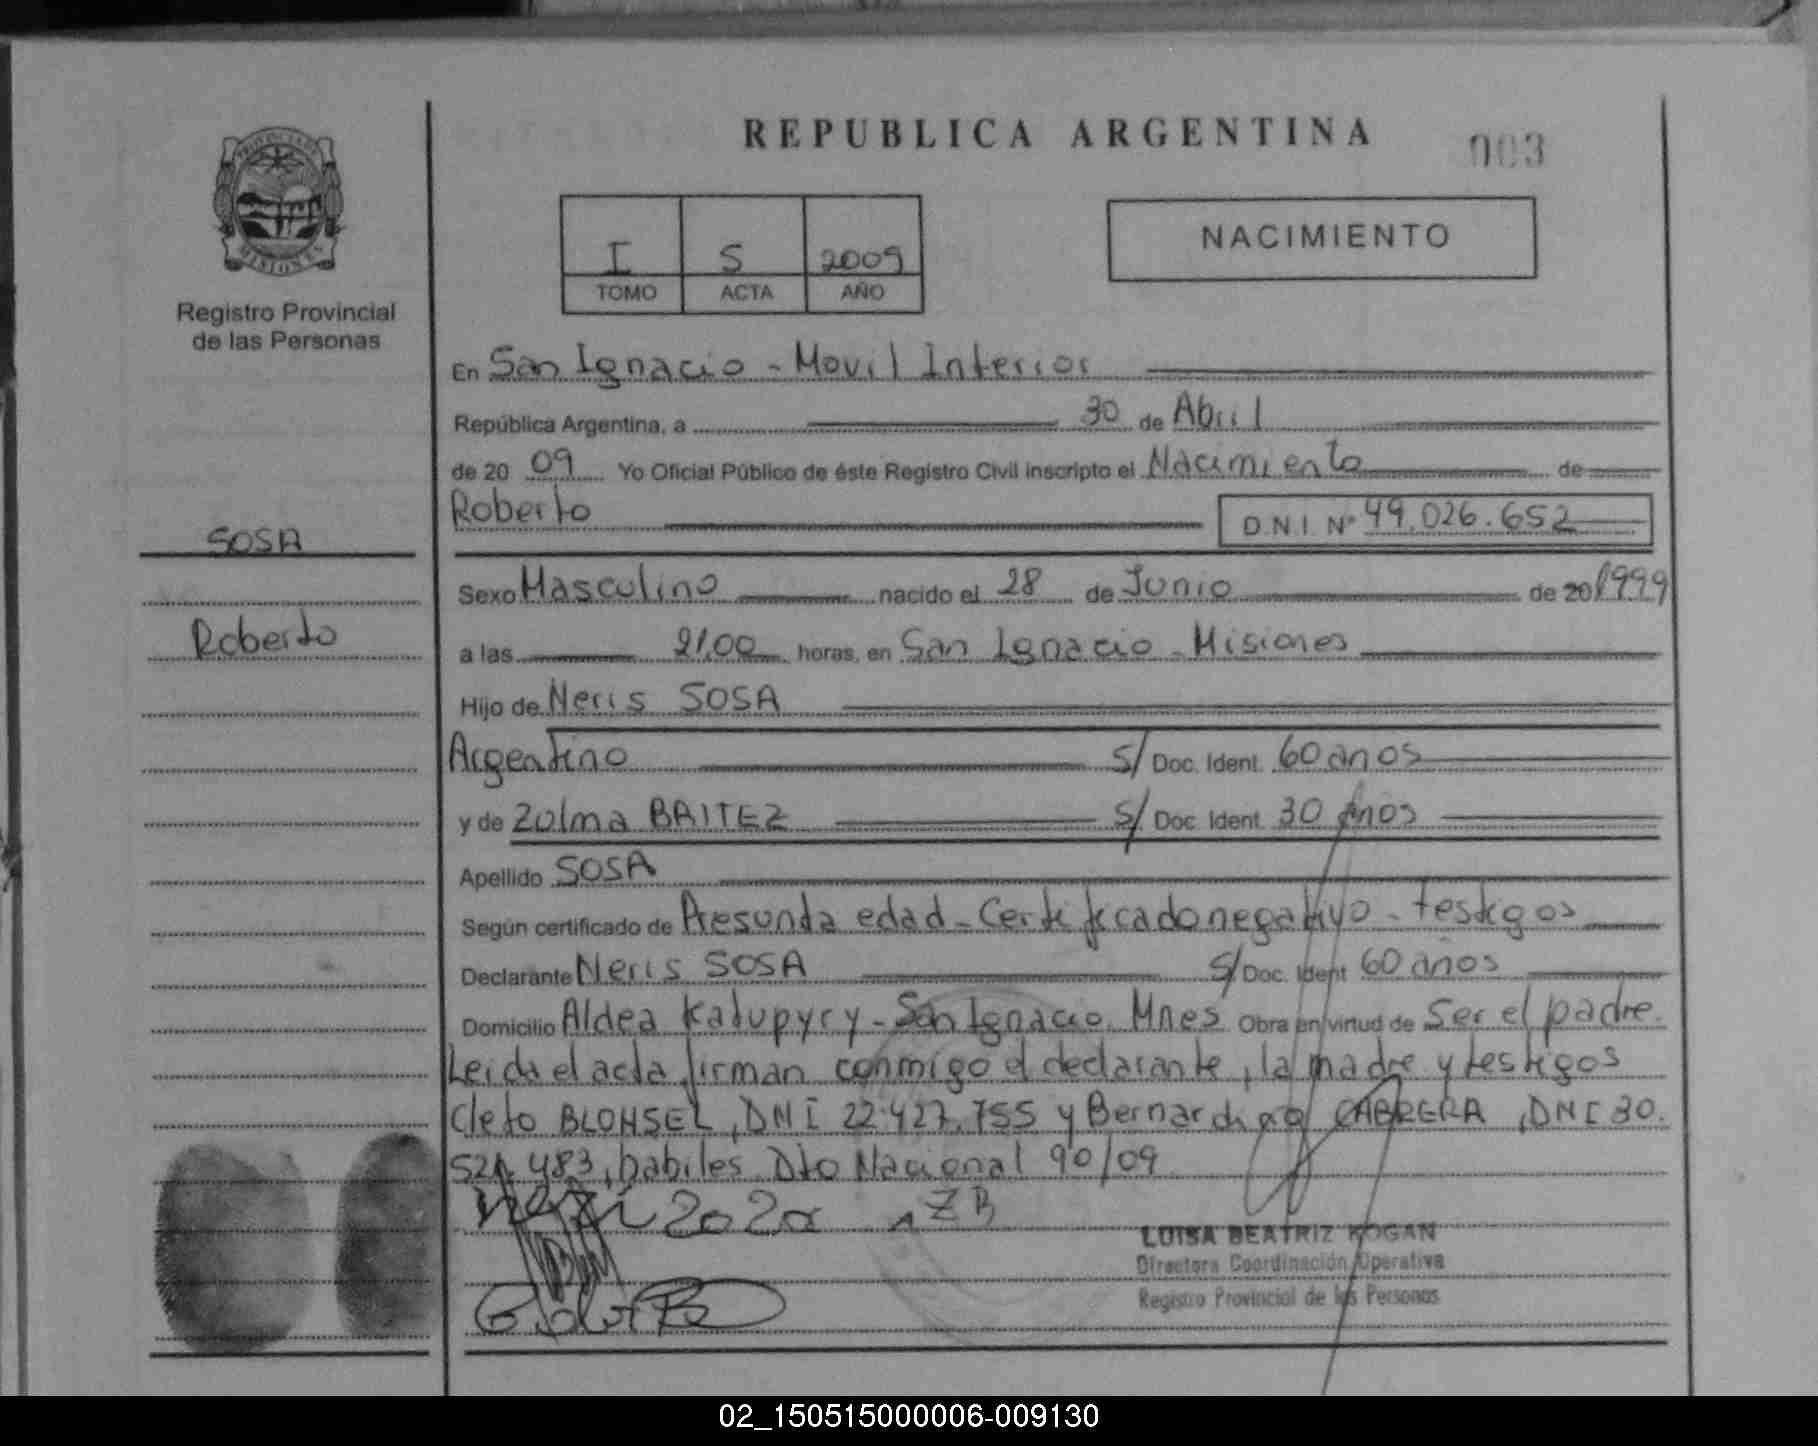 PROVINCIA DE
MISIONES
Registro Provincial
de las Personas
SOSA
Roberto
REPUBLICA ARGENTINA
003
I S 2009
TOMO ACTA AÑO
NACIMIENTO
En San Ignacio - Movil Interior
República Argentina, a 30 de Abril
de 20 09 Yo Oficial Público de éste Registro Civil inscripto el Nacimiento de
Roberto D.N.I. Nº 49.026.652
Sexo Masculino nacido el 28 de Junio de 20 1999
a las 21,00 horas, en San Ignacio - Misiones
Hijo de Neris SOSA
Argentino S/ Doc. Ident. 60 años
y de Zulma BAITEZ S/ Doc. Ident. 30 años
Apellido SOSA
Según certificado de Presunta edad - Certificado negativo - testigos
Declarante Neris SOSA S/ Doc. Ident 60 años
Domicilio Aldea Katupyry - San Ignacio. Mnes Obra en virtud de Ser el padre.
Leida el acta, firman conmigo el declarante, la madre y testigos
Cleto BLOHSEL, DNI 22.427.755 y Bernardino CABRERA, DNI 30.
521.483, habiles. Dto Nacional 90/09
ZB
LUISA BEATRIZ KOGAN
Directora Coordinación Operativa
Registro Provincial de las Personas
02_150515000006-009130